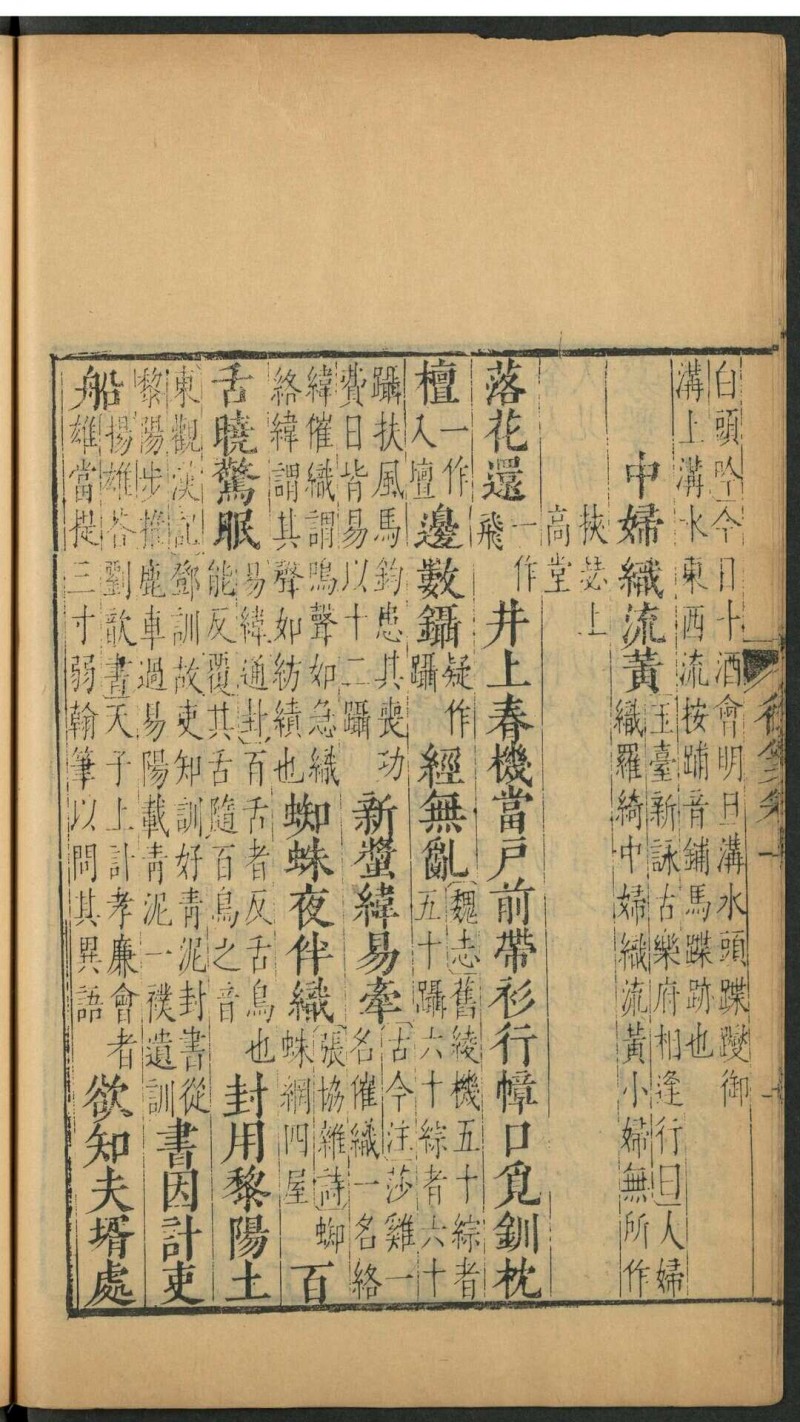 白頭吟今日斗酒會明旦溝水頭蹀躞御
溝上溝水東西流按踊音鋪馬蹀跡也
中婦織流黃玉臺新詠古樂府相逢行曰大婦織羅綺中婦織流黃小婦無所作
挾瑟上
高堂
落花還一作飛井上春機當戶前帶衫行幛口覓釧枕
檀一作入壇邊數鑷疑作躡經無亂魏志舊綾機五十綜者五十躡六十綜者六十
躡扶風馬鈞患其喪功費日皆易以十二躡新蟄緯易牽古今注莎雞一名催織一名絡
緯催織謂鳴聲如急織絡緯謂其聲如紡績也蜘蛛夜伴織張協雜詩蜘蛛網四屋百
舌曉驚眠易緯通卦百舌者反舌鳥也能反覆其舌隨百鳥之音封用黎陽土
東觀漢記鄧訓故吏知訓好青泥封書從黎陽步推鹿車過易陽載青泥一襆遺訓書因計吏
船揚雄答劉歆書天子上計孝廉會者雄當提三寸弱翰筆以問其異語欲知夫壻處